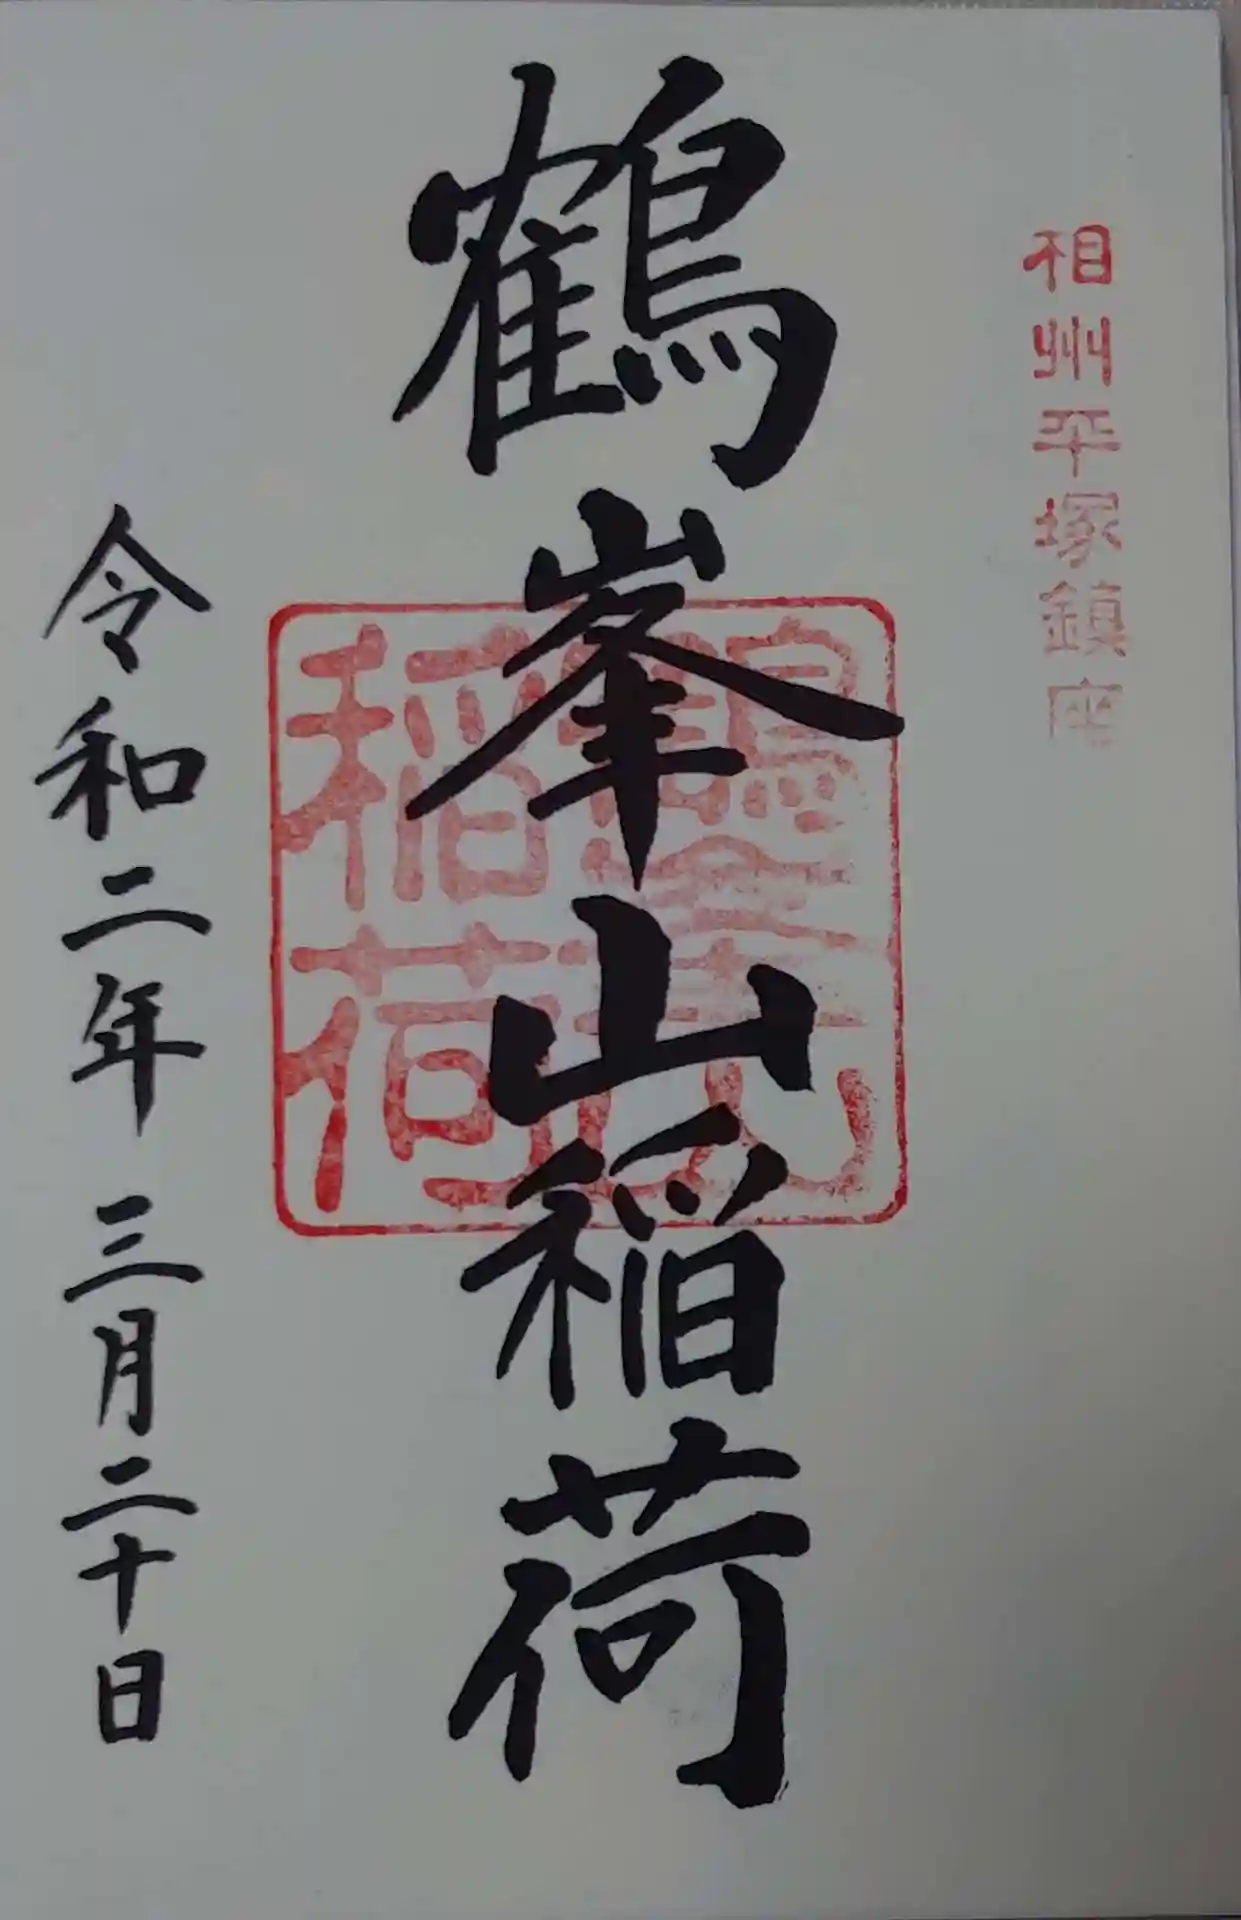 相州平塚鎮座
鶴峯山稲荷
令和二年三月二十日